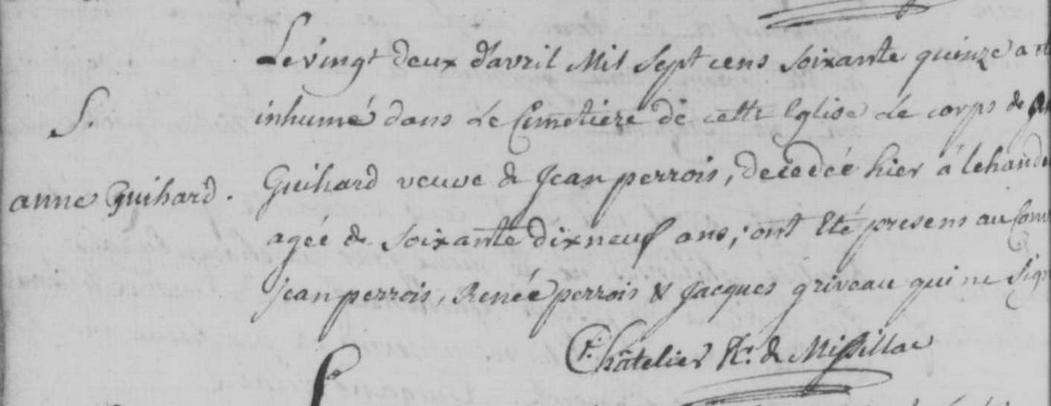 Le vingt deux d'avril mil sept cens soixante quinze a été
S. inhumé dans le Cimetiere de cette Eglise le corps de
anne Guihard. Guihard veuve de Jean perrois, decedée hier à
agée de soixante dixneuf ans; ont été presens au
jean perrois, Renée perrois & Jacques griveau qui ne
F. Châtelier Rr. de Missillac